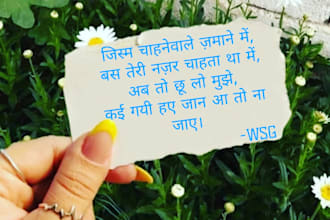 जिस्म चाहनेवाले ज़माने में,
बस तेरी नज़र चाहता था में,
अब तो छू लो मुझे,
कई गयी हुए जान आ तो ना
जाए।
-WSG